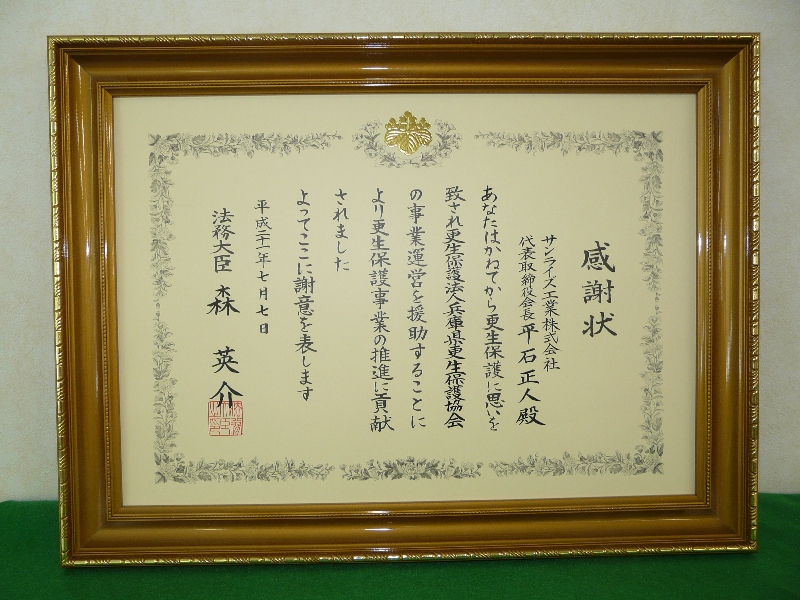 感謝状
サンライズ工業株式会社
代表取締役会長 平石正人殿
あなたはかねてから更生保護に思いを
致され更生保護法人兵庫県更生保護協会
の事業運営を援助することに
より更生保護事業の推進に貢献
されました
よってここに謝意を表します
平成二十一年七月七日
法務大臣 森 英介